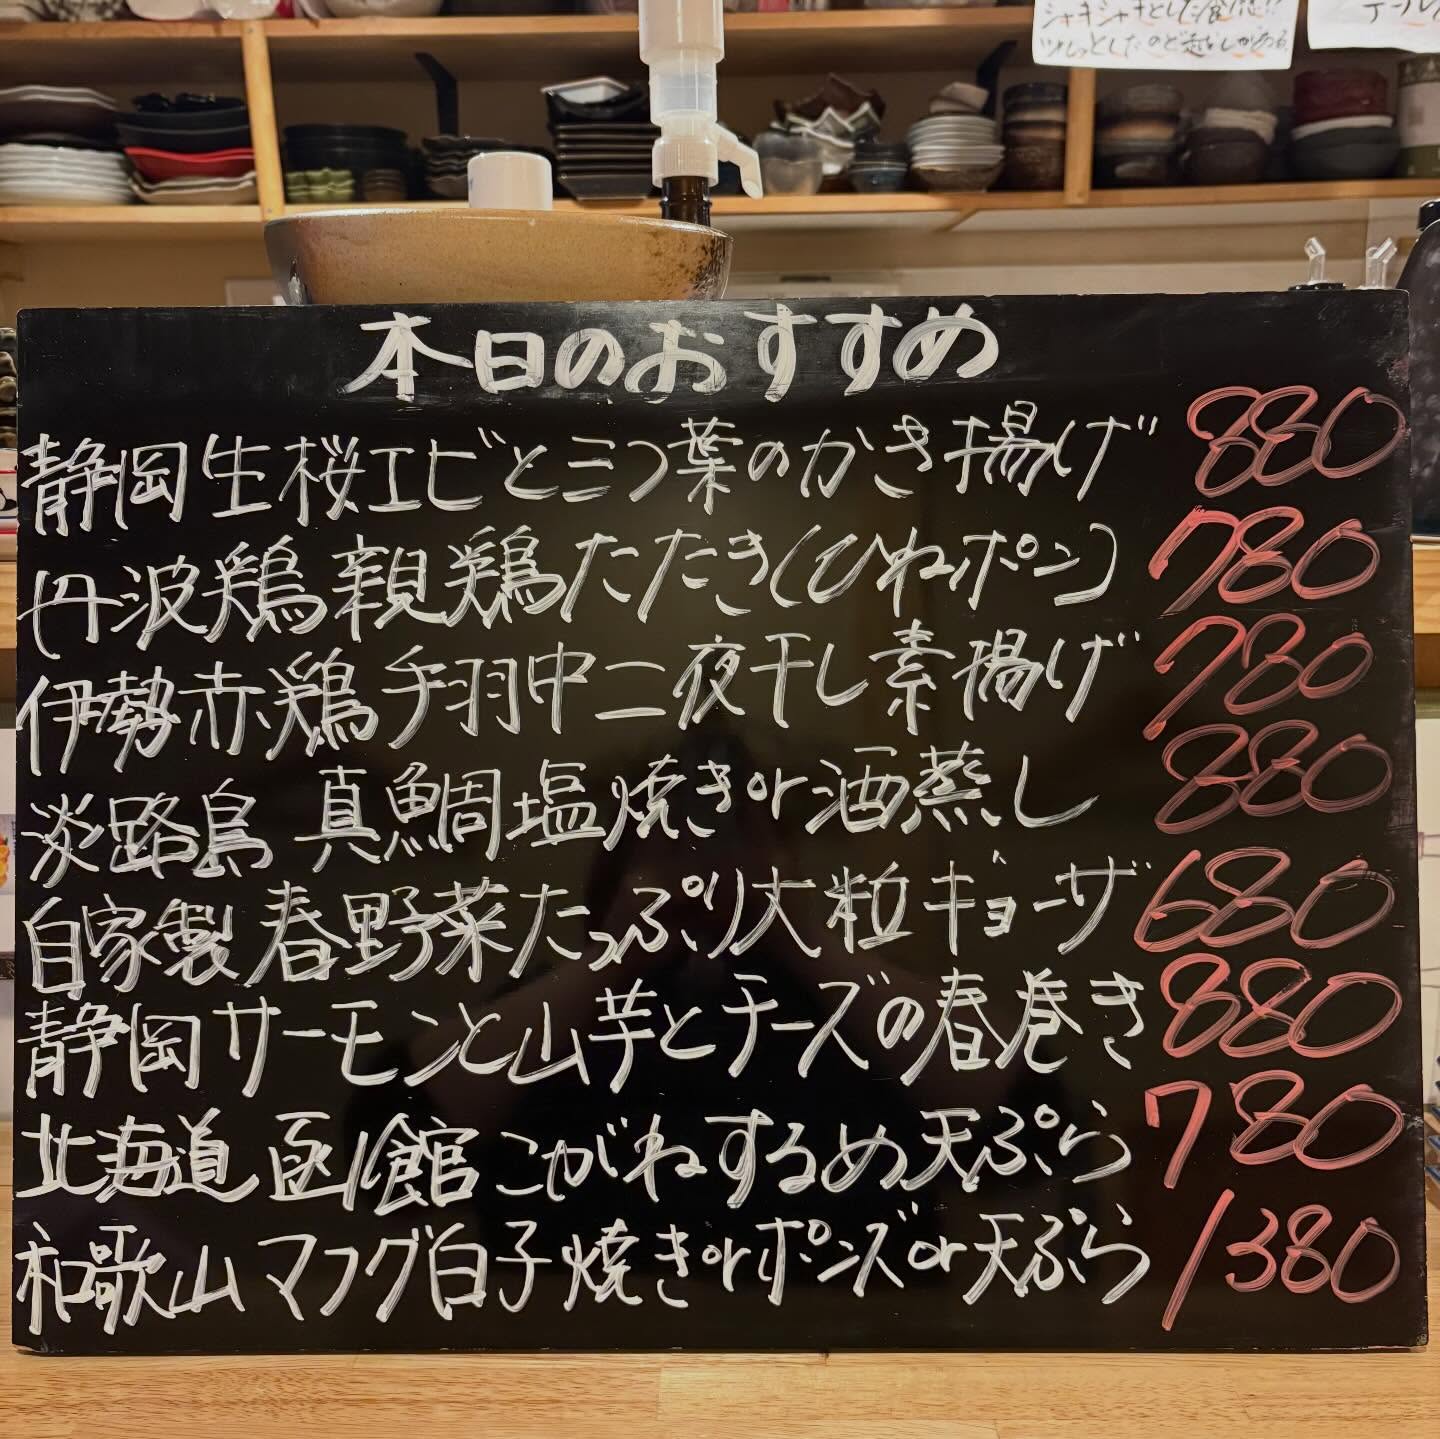 シャキシャキとした食感!!
本日のおすすめ
静岡生桜エビと三つ葉のかき揚げ 880
丹波鶏親鶏たたき(ひねポン) 780
伊勢赤鶏手羽中一夜干し素揚げ 780
淡路島 真鯛塩焼きor酒蒸し 880
自家製春野菜たっぷり大粒ギョーザ 680
静岡サーモンと山芋とチーズの春巻き 880
北海道 函館こがねするめ天ぷら 780
和歌山マフグ白子焼きorポンズor天ぷら 1380